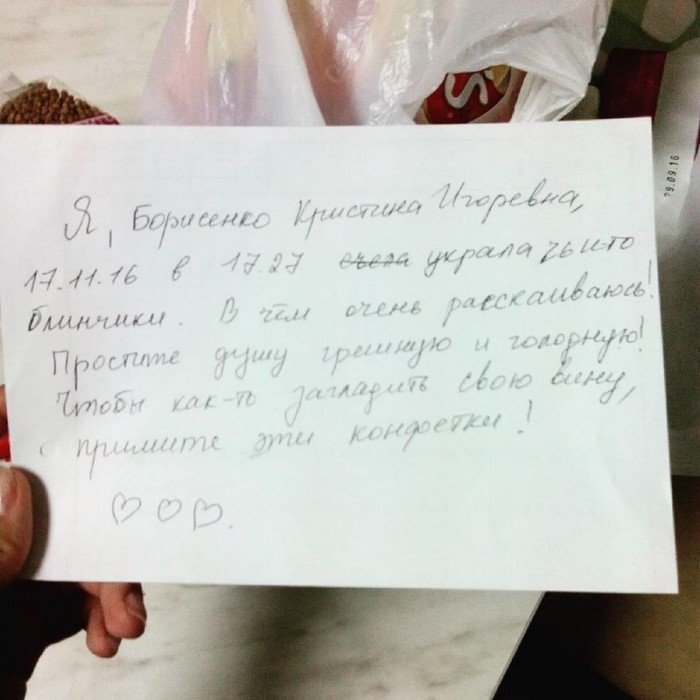 Я, Борисенко Кристина Игоревна,
17.11.16 в 17.27 съела украла чьи-то
блинчики. В чём очень расскаиваюсь!
Простите душу грешную и голодную!
Чтобы как-то загладить свою вину,
примите эти конфетки!
29.09.16